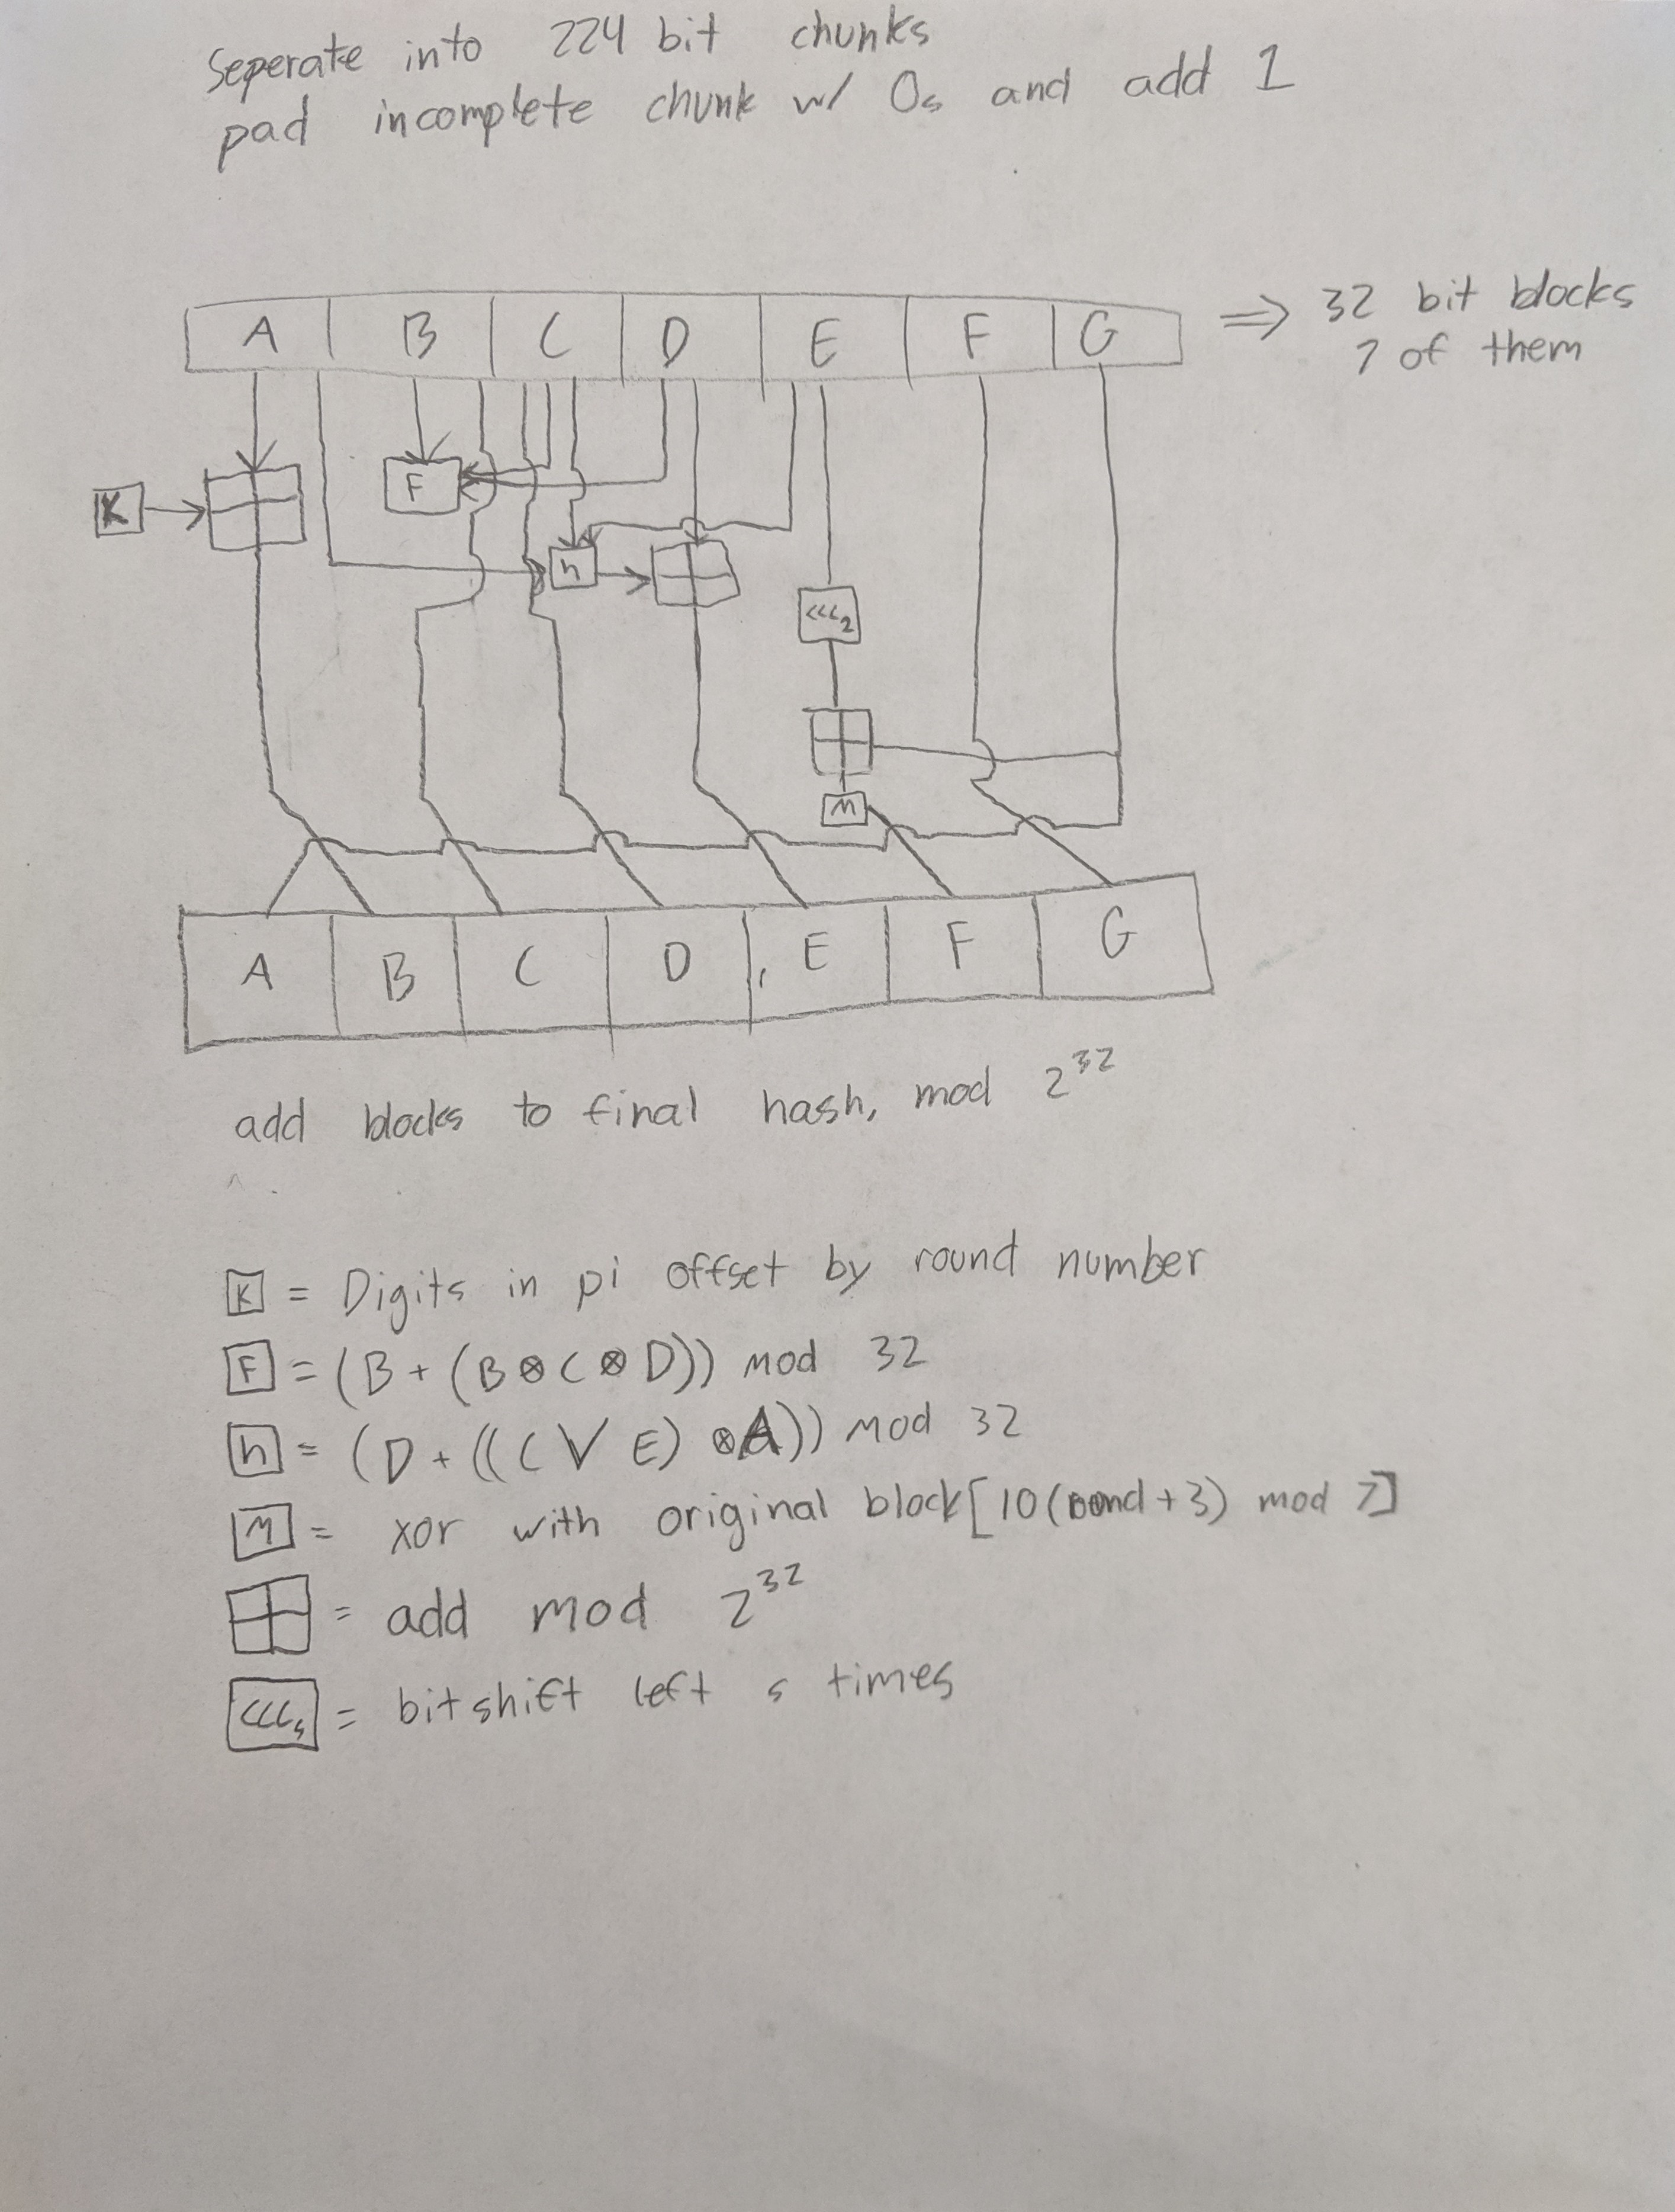 Seperate into 224 bit chunks
pad incomplete chunk w/ 0s and add 1
A B C D E F G ⇒ 32 bit blocks
7 of them
K F
h
<<<₂
M
A B C D E F G
add blocks to final hash, mod 2³²
K = Digits in pi offset by round number
F = (B + (B ⊗ C ⊗ D)) mod 32
h = (D + ((C V E) ⊗ A)) mod 32
M = xor with original block[10(round + 3) mod 7]
⊞ = add mod 2³²
<<<ₛ = bitshift left s times